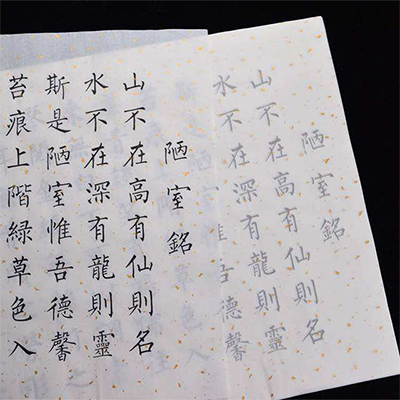 陋室銘
山不在高有仙則名
水不在深有龍則靈
吾德馨
陋室銘
山不在高有仙則名
水不在深有龍則靈
斯是陋室惟吾德馨
苔痕上階綠草色入